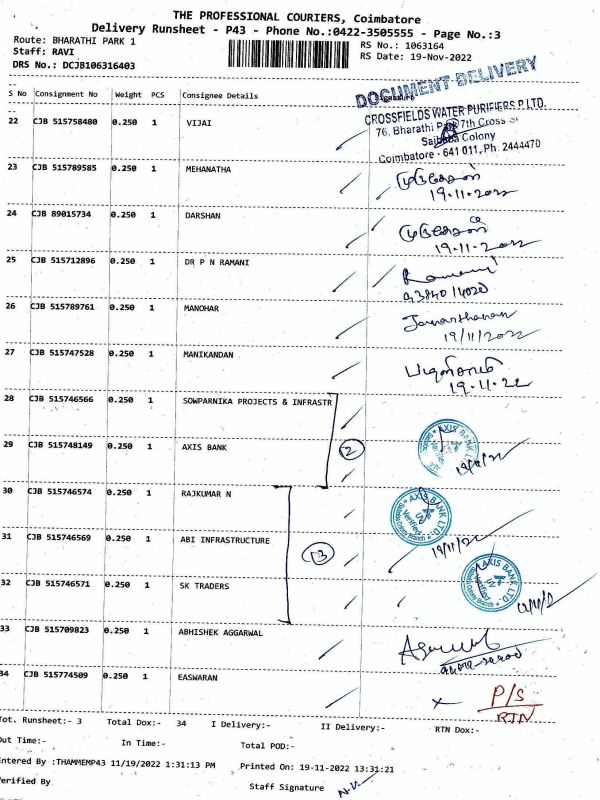 THE PROFESSIONAL COURIERS, Coimbatore
Delivery Runsheet - P43 - Phone No.:0422-3505555 - Page No.:3
Route: BHARATHI PARK 1
RS No.: 1063164
Staff: RAVI
RS Date: 19-Nov-2022
DRS No.: DCJB106316403
DOCUMENT DELIVERY
S No Consignment No Weight PCS Consignee Details Signature
22 CJB 515758480 0.250 1 VIJAI
CROSSFIELDS WATER PURIFIERS P LTD.
76, Bharathi Park 7th Cross St
Saibaba Colony
Coimbatore - 641 011, Ph: 2444470
23 CJB 515789585 0.250 1 MEHANATHA
19-11-2022
24 CJB 89015734 0.250 1 DARSHAN
19-11-2022
25 CJB 515712896 0.250 1 DR P N RAMANI
Ramani
26 CJB 515789761 0.250 1 MANOHAR
Janarthanan
19/11/2022
27 CJB 515747528 0.250 1 MANIKANDAN
19-11-22
28 CJB 515746566 0.250 1 SOWPARNIKA PROJECTS & INFRASTR
29 CJB 515748149 0.250 1 AXIS BANK
2
AXIS BANK LTD.
30 CJB 515746574 0.250 1 RAJKUMAR N
AXIS BANK LTD.
31 CJB 515746569 0.250 1 ABI INFRASTRUCTURE
3
19/11/22
32 CJB 515746571 0.250 1 SK TRADERS
AXIS BANK LTD.
33 CJB 515709823 0.250 1 ABHISHEK AGGARWAL
34 CJB 515774509 0.250 1 EASWARAN
P/S
RTN
Tot. Runsheet:- 3 Total Dox:- 34 I Delivery:- II Delivery:- RTN Dox:-
Out Time:- In Time:- Total POD:-
Entered By :THAMMEMP43 11/19/2022 1:31:13 PM Printed On: 19-11-2022 13:31:21
Verified By Staff Signature